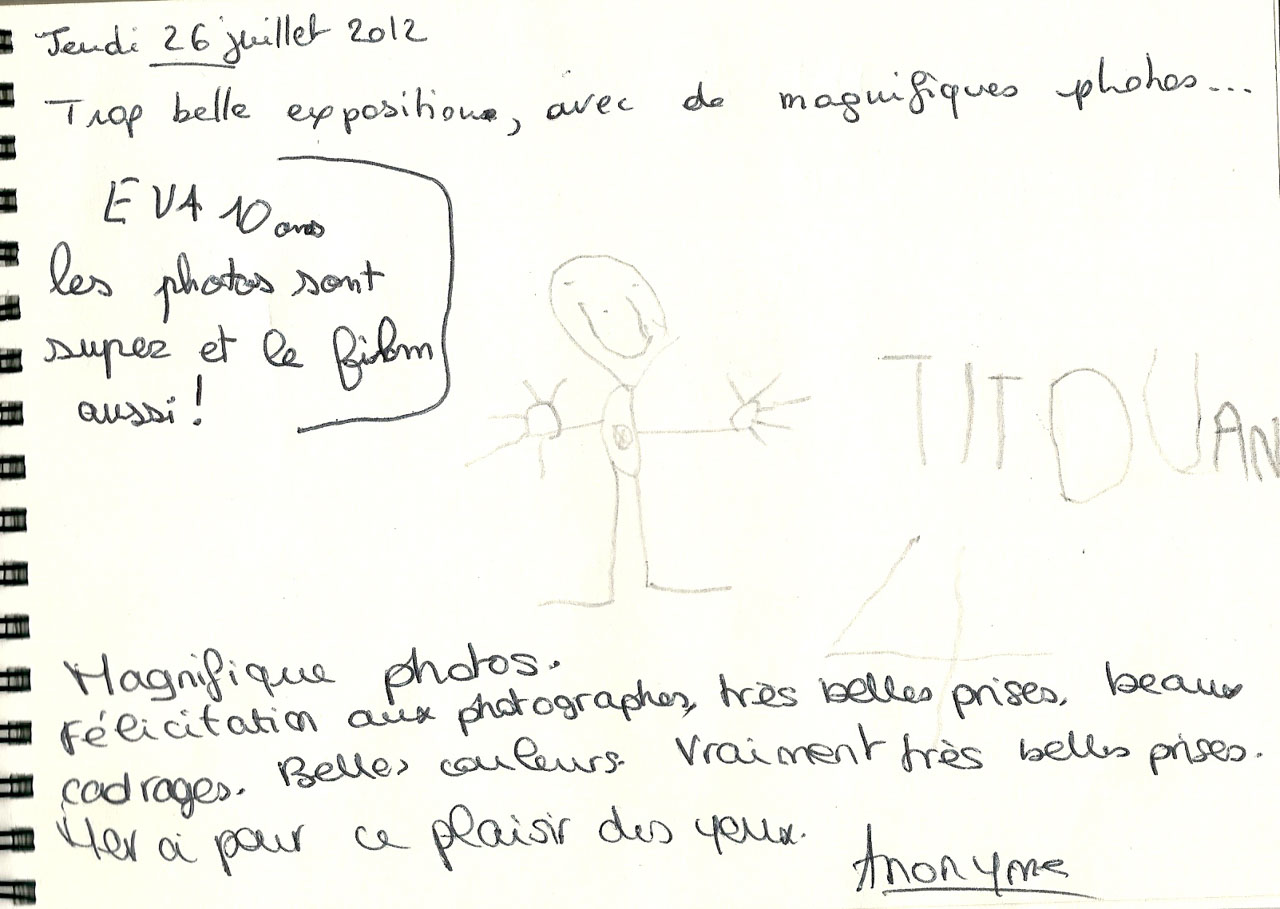 Jeudi 26 juillet 2012
Trop belle exposition, avec de magnifiques photos...
EVA 10 ans
les photos sont
super et le film
aussi !
TITOUAN
4
Magnifique photos.
Félicitation aux photographes, très belles prises, beaux
cadrages. Belles couleurs. Vraiment très belles prises.
Merci pour ce plaisir des yeux.
Anonyme